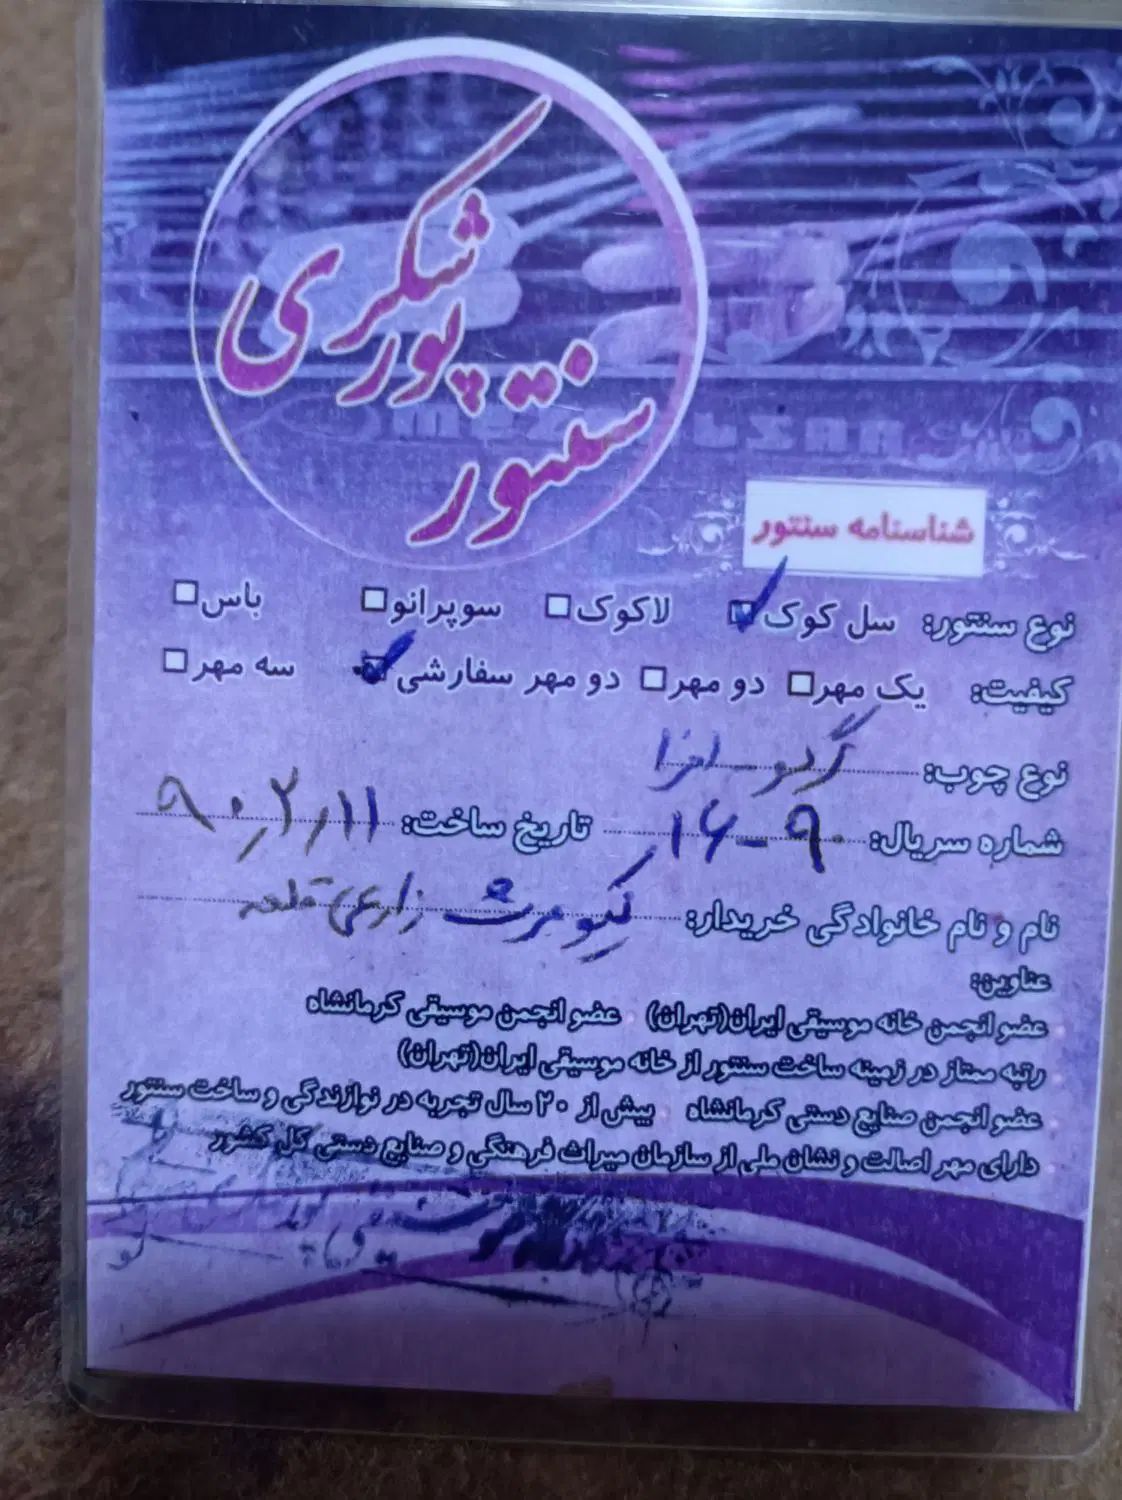 سنتور پورشکری
شناسنامه سنتور
نوع سنتور: سل کوک لاکوک سوپرانو باس
کیفیت: یک مهر دو مهر دو مهر سفارشی سه مهر
نوع چوب: گردو - افرا
شماره سریال: ۹۰-۱۶ تاریخ ساخت: ۹۰٫۲٫۱۱
نام و نام خانوادگی خریدار: کیومرث زارعی قلعه
عناوین:
عضو انجمن خانه موسیقی ایران(تهران) عضو انجمن موسیقی کرمانشاه
رتبه ممتاز در زمینه ساخت سنتور از خانه موسیقی ایران(تهران)
عضو انجمن صنایع دستی کرمانشاه بیش از ۲۰ سال تجربه در نوازندگی و ساخت سنتور
دارای مهر اصالت و نشان ملی از سازمان میراث فرهنگی و صنایع دستی کل کشور